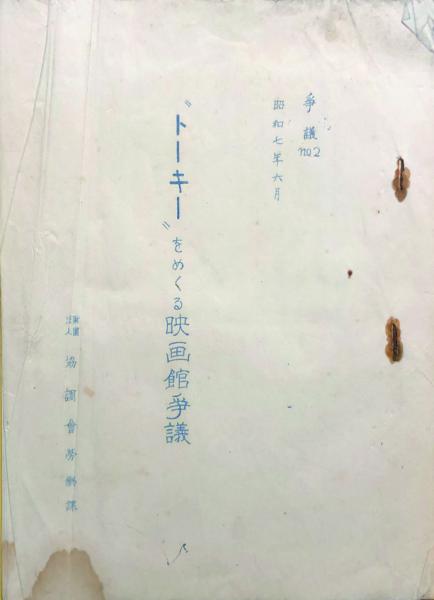 爭議
no2
昭和七年六月
〝トーキー〟をめくる映画館爭議
財團
法人
協調會勞働課